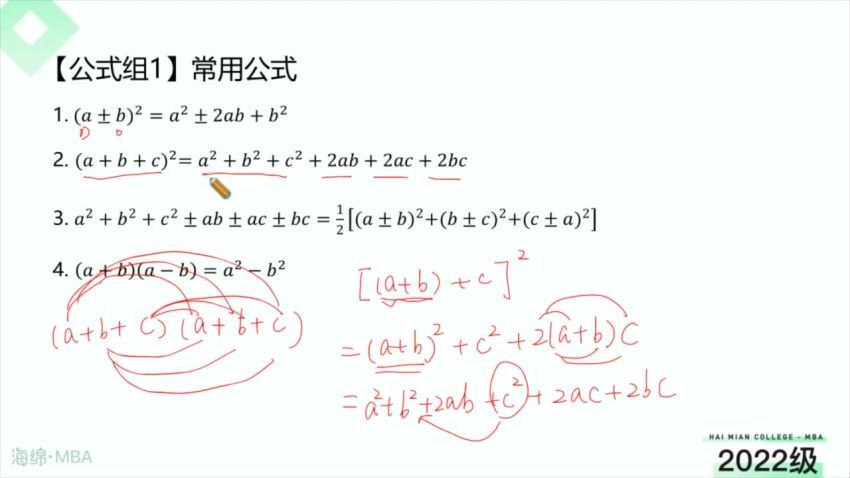 【公式组1】常用公式
1. (a ± b)² = a² ± 2ab + b²
2. (a + b + c)²= a² + b² + c² + 2ab + 2ac + 2bc
3. a² + b² + c² ± ab ± ac ± bc = ½[(a ± b)²+(b ± c)²+(c ± a)²]
4. (a + b)(a − b) = a² − b²
[(a+b)+c]²
(a+b+c)(a+b+c)
=(a+b)²+c²+2(a+b)c
=a²+b²+2ab+c²+2ac+2bc
海绵·MBA
HAI MIAN COLLEGE - MBA
2022级